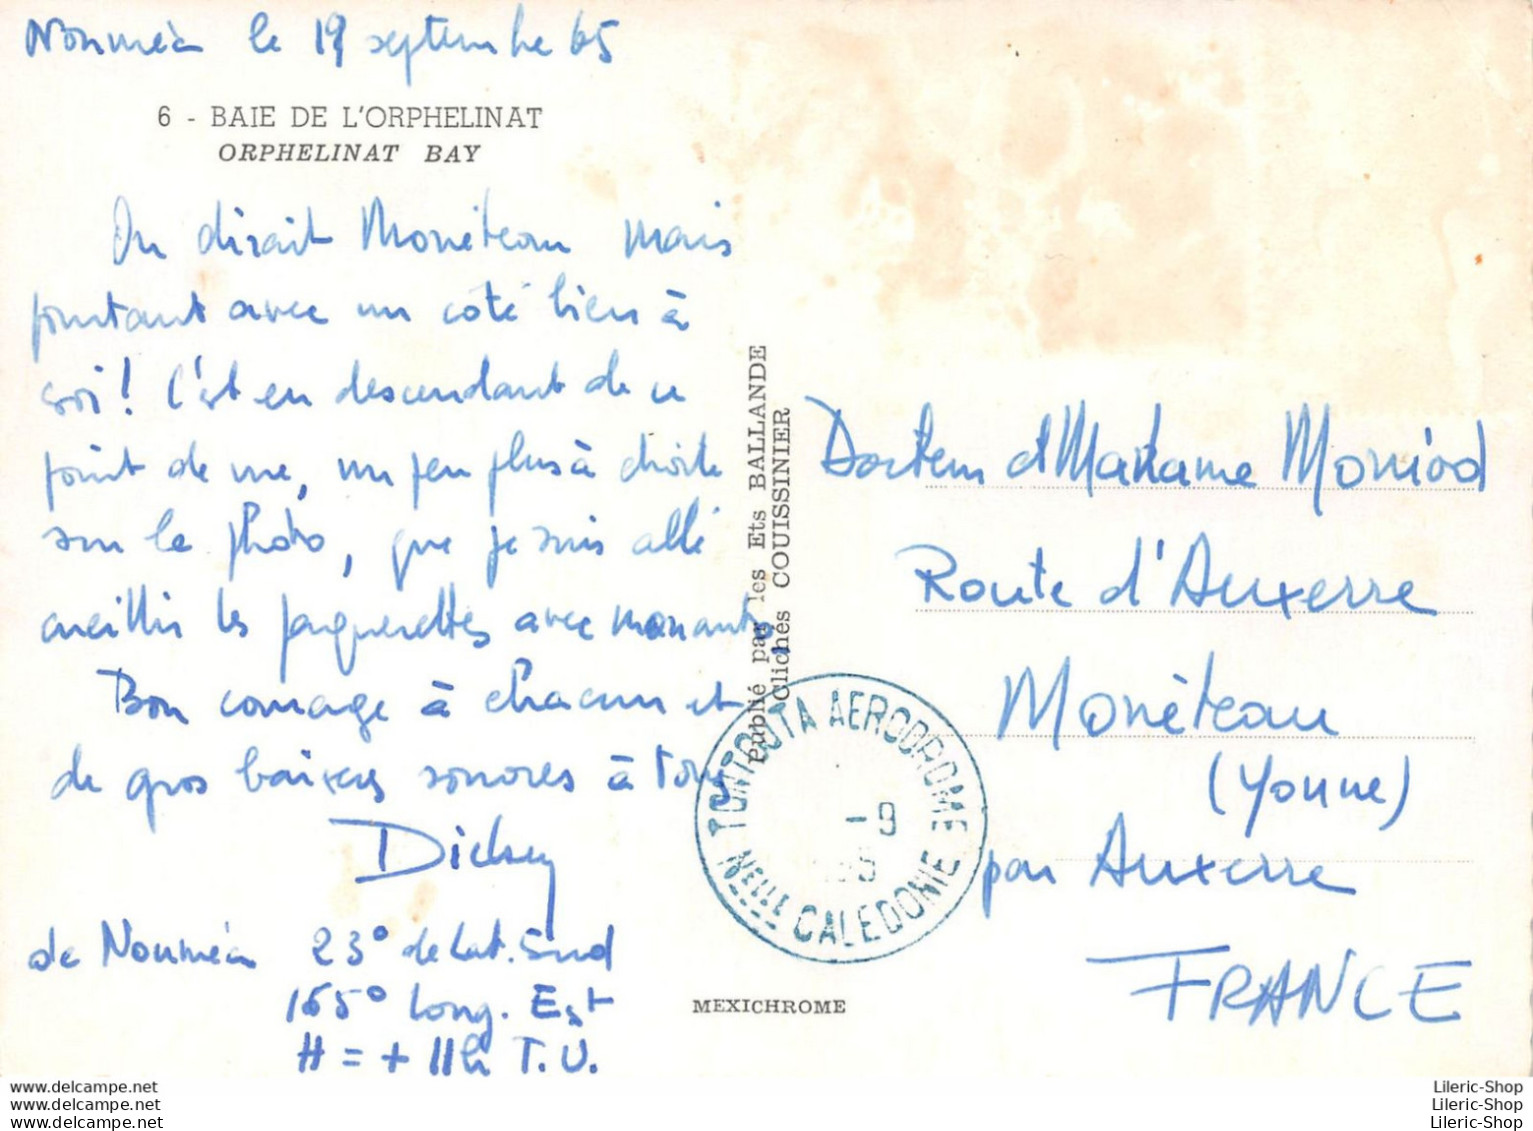 Nouméa le 19 septembre 65
6 - BAIE DE L'ORPHELINAT
ORPHELINAT BAY
On dirait Monéteau mais
pourtant avec un côté bien à
soi! C'est en descendant de ce
point de vue, un peu plus à droite
sur la photo, que je suis allé
cueillir les paquerettes avec
Bon courage à chacun et
de gros baisers sonores à tous
de Nouméa 23° de Lat. Sud
165° Long. Est
H = + 11h T.U.
Publié par les Ets BALLANDE
Clichés COUISSINIER
MEXICHROME
TONTOUTA AERODROME
-9
NELLE CALEDONIE
Docteur et Madame Moniod
Route d'Auxerre
Monéteau
(Yonne)
par Auxerre
FRANCE
www.delcampe.net
www.delcampe.net
www.delcampe.net
Lileric-Shop
Lileric-Shop
Lileric-Shop